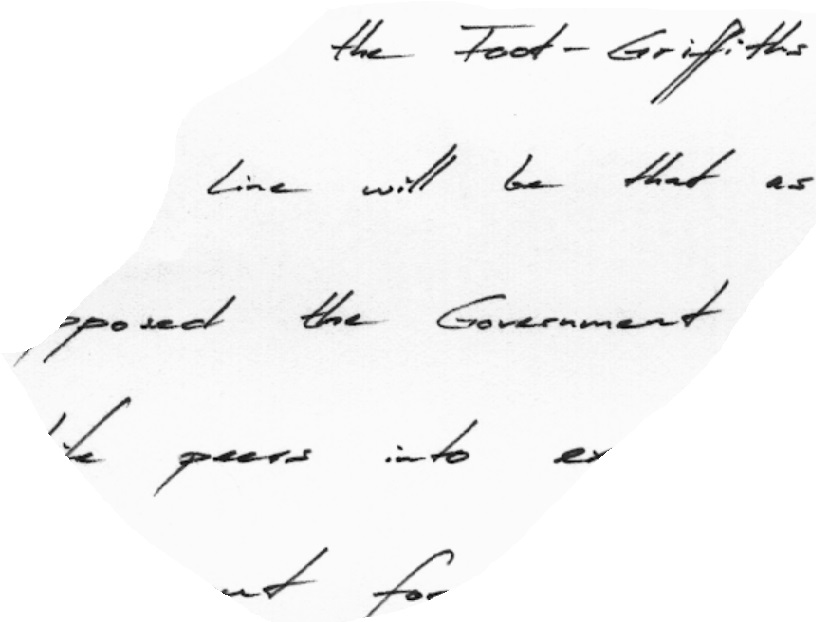 the Foot-Griffiths
line will be that as
opposed the Government
life peers into
for